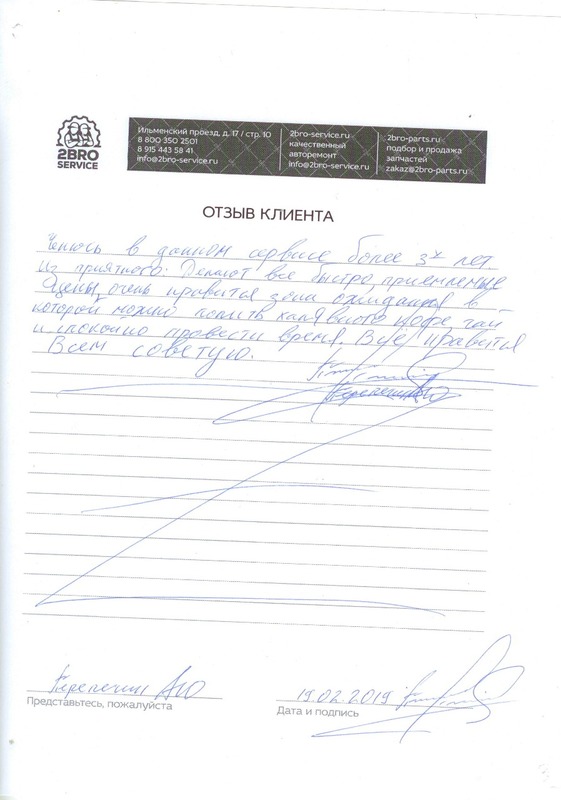 2BRO
SERVICE
Ильменский проезд, д. 17 / стр. 10
8 800 350 2501
8 915 443 58 41
info@2bro-service.ru
2bro-service.ru
качественный
авторемонт
info@2bro-service.ru
2bro-parts.ru
подбор и продажа
запчастей
zakaz@2bro-parts.ru
ОТЗЫВ КЛИЕНТА
Чинюсь в данном сервисе более 3х лет.
Из приятного: Делают все быстро, приемлемые
цены, очень нравится зона ожидания в
которой можно попить халявного кофе, чай
и спокойно провести время. Все нравится
Всем советую.
Перепечин АЮ
Представьтесь, пожалуйста
19.02.2019
Дата и подпись